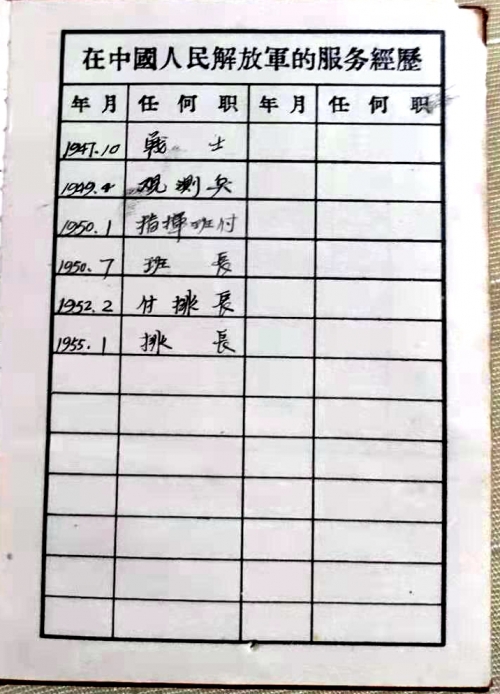 在中國人民解放軍的服务經歷
年月 任何职 年月 任何职
1947.10 戰士
1949.4 观测兵
1950.1 指揮班付
1950.7 班長
1952.2 付排長
1955.1 排長